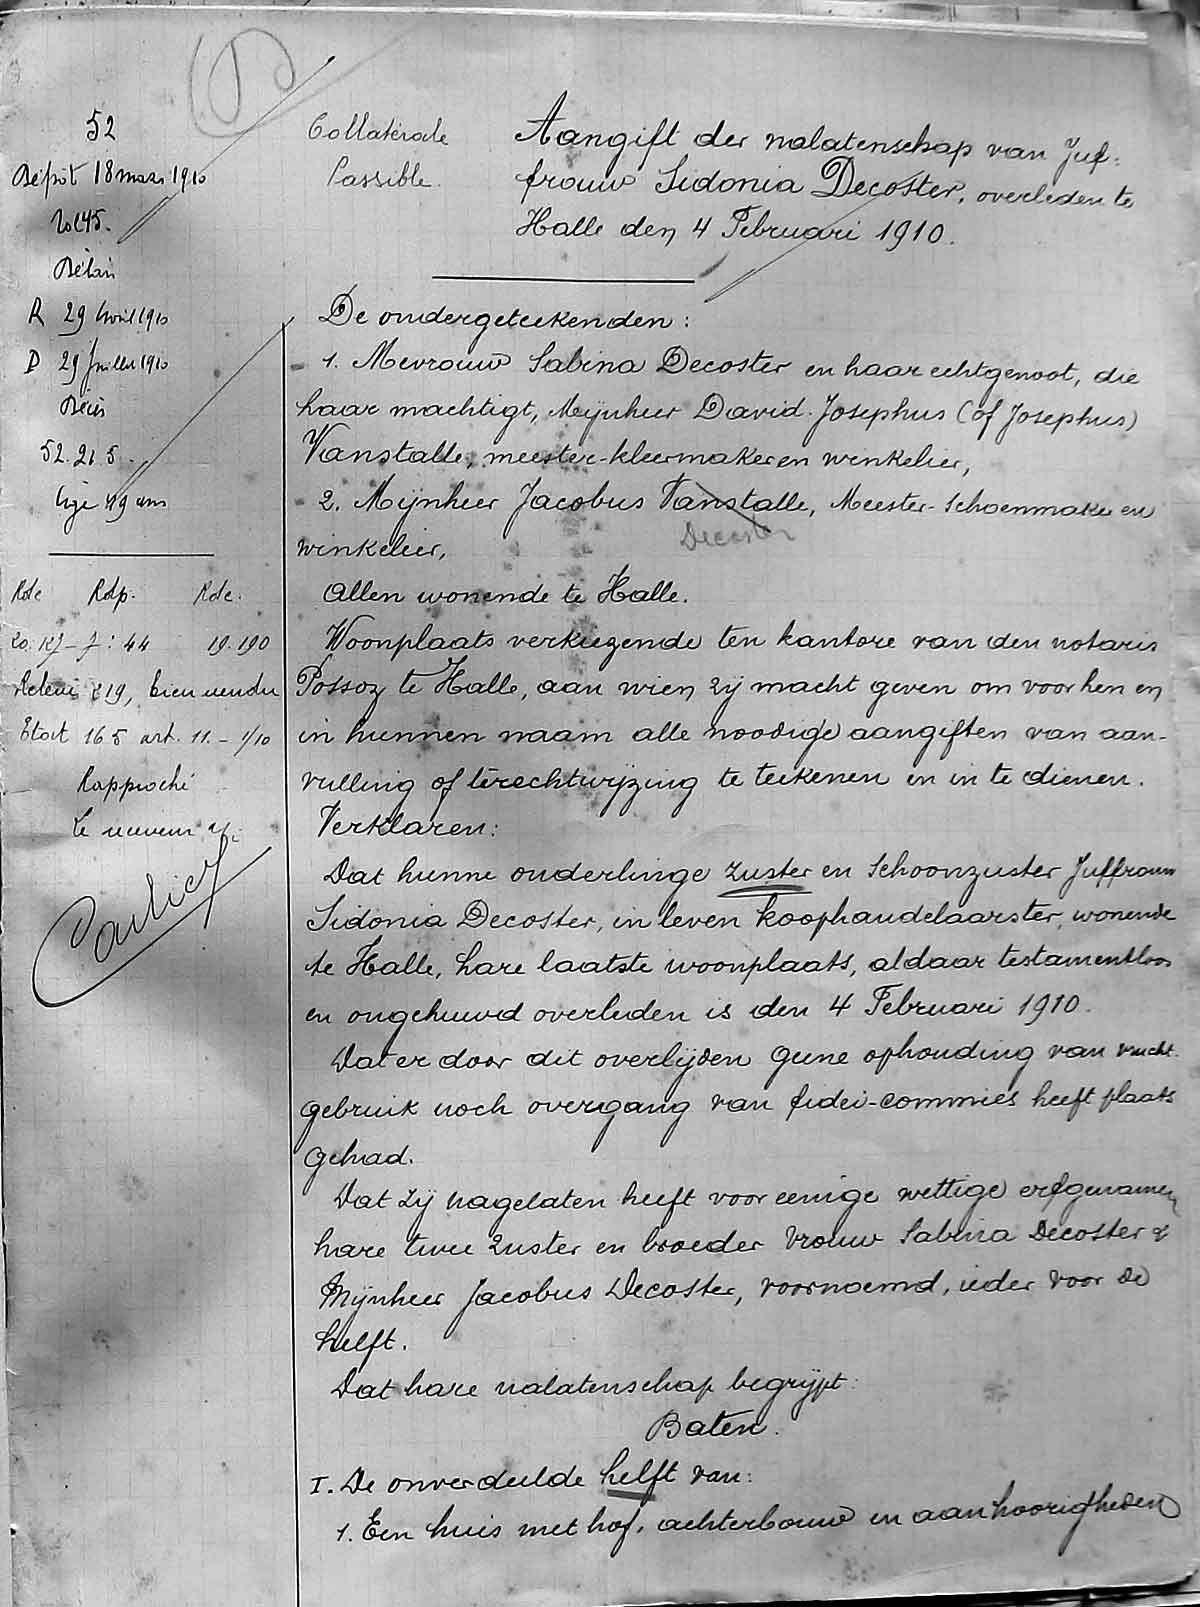 52
Dépôt 18 mars 1910
Délai
R 29 Avril 1910
D 29 Juillet 1910
Décès
52.215.
âgé 49 ans
Rapproché
Collatérale
Passible.
Aangift der nalatenschap van Juf-
frouw Sidonia Decoster, overleden te
Halle den 4 Februari 1910.
De ondergeteekenden:
1. Mevrouw Sabina Decoster en haar echtgenoot, die
haar machtigt, Mijnheer David-Josephus (of Josephus)
Vanstalle, meester-kleermaker en winkelier,
2. Mijnheer Jacobus Vanstalle, Meester-Schoenmaker en
Decoster
winkelier,
Allen wonende te Halle.
Woonplaats verkiezende ten kantore van den notaris
Possoz te Halle, aan wien zij macht geven om voor hen en
in hunnen naam alle noodige aangiften van aan-
vulling of terechtwijzing te teekenen en in te dienen.
Verklaren:
Dat hunne onderlinge zuster en schoonzuster Juffrouw
Sidonia Decoster, in leven koophandelaarster, wonende
te Halle, hare laatste woonplaats, aldaar testamentloos
en ongehuwd overleden is den 4 Februari 1910.
Dat er door dit overlijden geene ophouding van vrucht-
gebruik noch overgang van fidei-commies heeft plaats
gehad.
Dat zij nagelaten heeft voor eenige wettige erfgenamen
hare twee zuster en broeder Vrouw Sabina Decoster &
Mijnheer Jacobus Decoster, voornoemd, ieder voor de
helft.
Dat hare nalatenschap begrijpt:
Baten.
I. De onverdeelde helft van:
1. Een huis met hof, achterbouw en aanhoorigheden